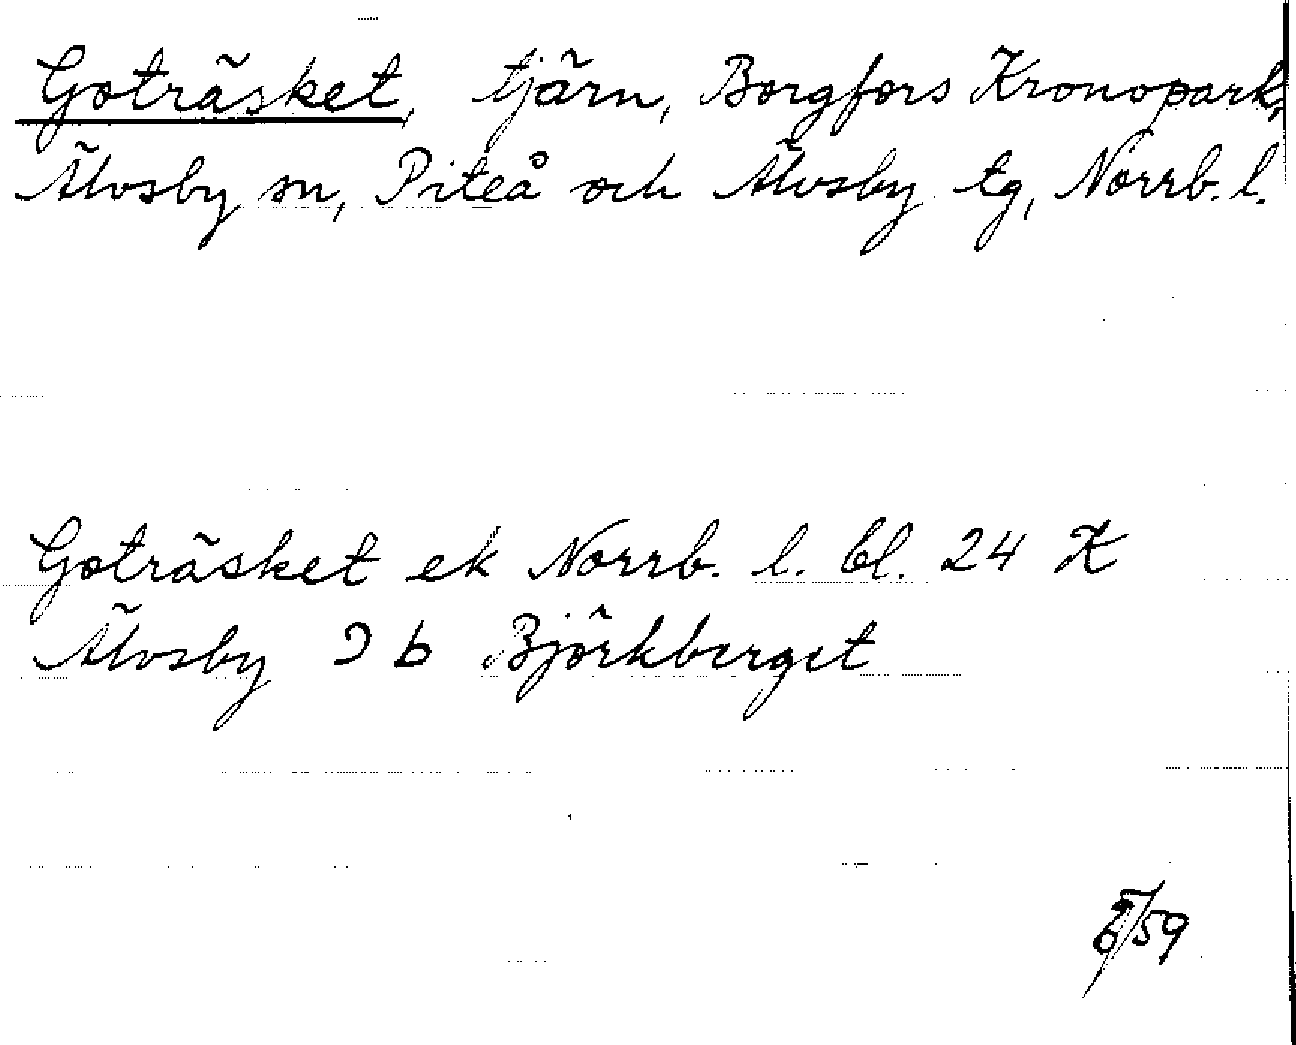 Goträsket, tjärn, Borgfors Kronopark,
Älvsby sn, Piteå och Älvsby tg, Norrb. l.
Goträsket ek Norrb. l. bl. 24 X
Älvsby 9 b Björkberget
/59